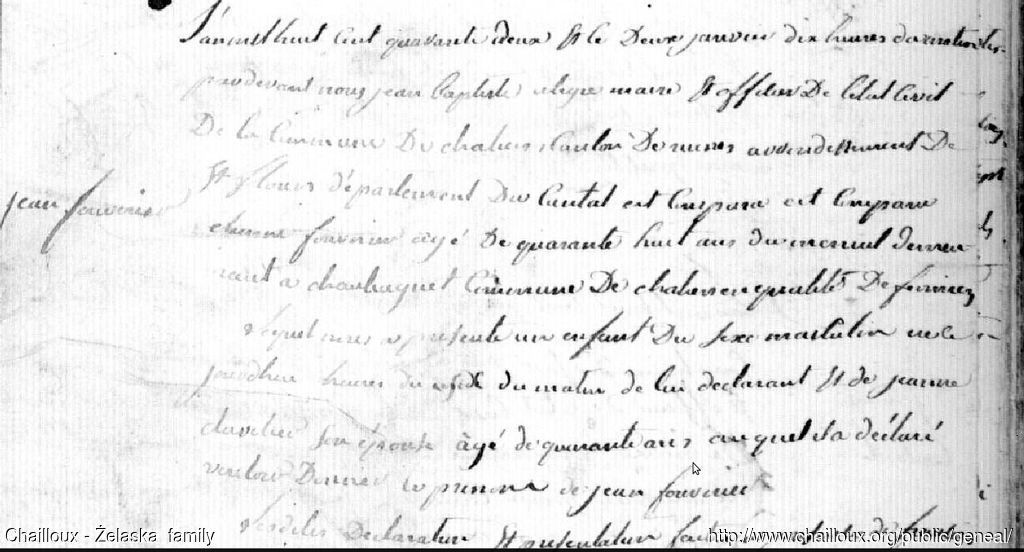 L'an mil huit cent quarante deux et le Deux janvier dix heures du matin
par devant nous jean baptiste maire et officier De letat Civil
De la Commune De chaliers Canton De ruines arrondissement De
jean fouvrier
St flours departement Du Cantal est Comparu est Comparu
etienne fouvrier agé De quarante huit ans demeu
rant a Commune De chaliers en qualité De
lequel nous a presenté un enfant Du sexe masculin né le
jour heures du du matin de lui declarant et de jeanne
son épouse àgé de quarante ans auquel il a déclaré
vouloir Donner le prenom de jean fouvrier
lesdites Declaration et presentation
Chailloux - Żelaska family
http://www.chailloux.org/public/geneal/